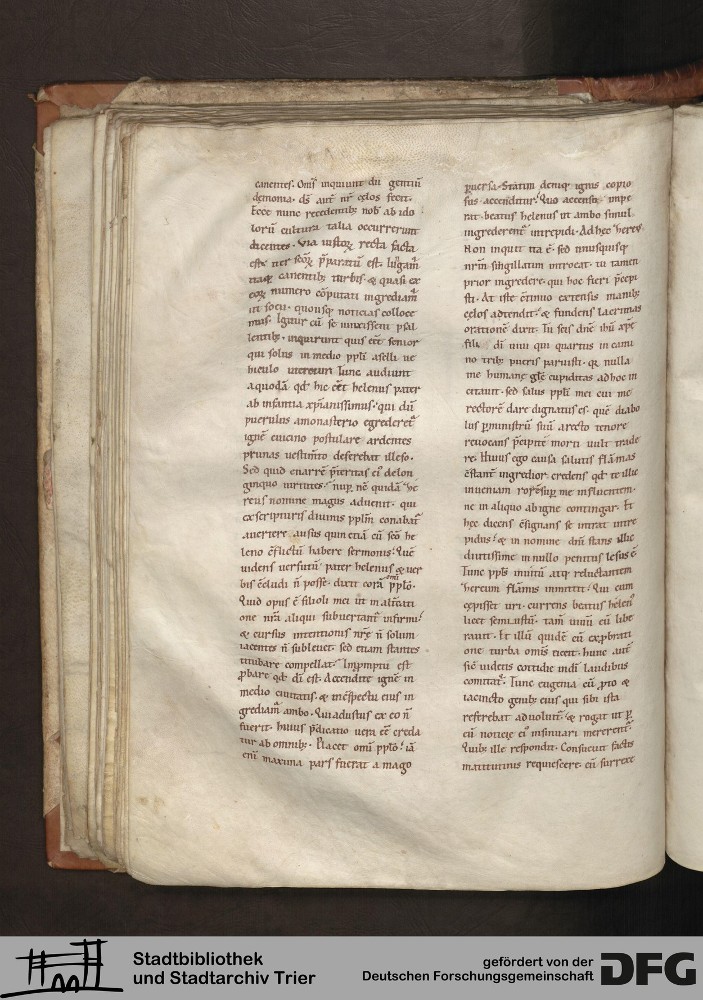 canentes. Om̄s inquiunt dii gentiū
demonia. ds̄ aut̄ nr̄ cęlos fecit.
Ecce nunc recedentib; nob̄ ab ido
lorū cultura talia occurrerunt
dicentes. Via iustoꝝ recta facta
est. iter
numero cōputati ingrediam̄
ut socii. quousq;
mus. Igitur cū se iunxissent psal
lentib; inquirunt quis eēt senior
qui solus in medio ppl̄i aselli ue
hiculo ueretur. Tunc audiunt
a quodā qd̄ hic eēt helenus pater
ab infantia xp̄ianissimus. qui dū
puerulus a monasterio egrederet̄
ignē euicino postulare ardentes
prunas uestim̄to deferebat illeso.
Sed quid enarrē p̄teritas ei᾽ de lon
ginquo uirtutes. nup̄ nē quidā
reus nomine magus aduenit. qui
ex scripturis diuinis pplm̄ conabat̄
auertere. ausus quin etiā cū sc̄o he
leno cflictū habere sermonis. Quē
uidens uersutū pater helenus & uer
bis c̄cludi n̄ posse. dixit corā omī pplō.
Quid opus ē filioli mei ut in alt̄cati
one nr̄a aliqui subuertant̄ infirmi.
& cursus intentionis nr̄ę n̄ solum
iacentes n̄ subleuet. sed etiam stantes
titubare compellat. Inpromptu est
ꝓbare qd̄ dī est. Accendite ignē in
medio ciuitatis. & in c̄spectu eius in
grediam̄ ambo. Qui adustus ex eo n̄
fuerit. huius p̄dicatio uera eē creda
tur ab omnib;. Placet omī pplō. iā
eni maxima pars fuerat a mago
ꝑuersa. Statim deniq; ignis copio
sus accenditur. Quo accenso. impe
rat beatus helenus ut ambo simul
ingrederent̄ intrepidi. Ad hęc
Non inquit ita ē. sed unusquisq;
nr̄m singillatim introeat. tu tamen
prior ingredere. qui hoc fieri p̄cepi
sti. At iste c̄tinuo extensis manib;
cęlos adtendit. & fundens lacrimas
orationē dixit. Tu scis dn̄e ihū xp̄e
fili dī uiui qui quartus in cami
no trib; pueris paruisti. qa nulla
me humanę glę cupiditas ad hoc in
citauit. sed salus ppl̄i mei cui me
rectorē dare dignatus es. quē diabo
lus ꝑ ministrū suū a recto tenore
reuocans p̄cipite morti uult trade
re. Huius ego causa salutis flāmas
c̄stant̄ ingredior. credens qd̄ te illic
inueniam
ne in aliquo ab igne contingar. Et
hęc dicens c̄signans se intrat intre
pidus. & in nomine dn̄i stans illic
diutissime in nullo penitus lesus ē.
Tunc ppls̄ inuitū atq; reluctantem
flāmis inmittit. Qui cum
cępisset uri. currens beatus helen᾽
licet semiustū. tam̄ uiuū eū libe
rauit. Et illū quidē cū exprobrati
one turba omīs eiecit. hunc aut̄
sic uidetis cottidie indi laudibus
comitat̄. Tunc eugenia cū proto &
iacincto genib; eius qui sibi ista
referebat aduoluit̄. & rogat ut ꝑ
eū notitię ei᾽ insinuari mererent̄.
Quib; ille respondit. Consueuit factis
matutinis requiescere. cū surrexe
Stadtbibliothek
und Stadtarchiv Trier
gefördert von der
Deutschen Forschungsgemeinschaft
DFG